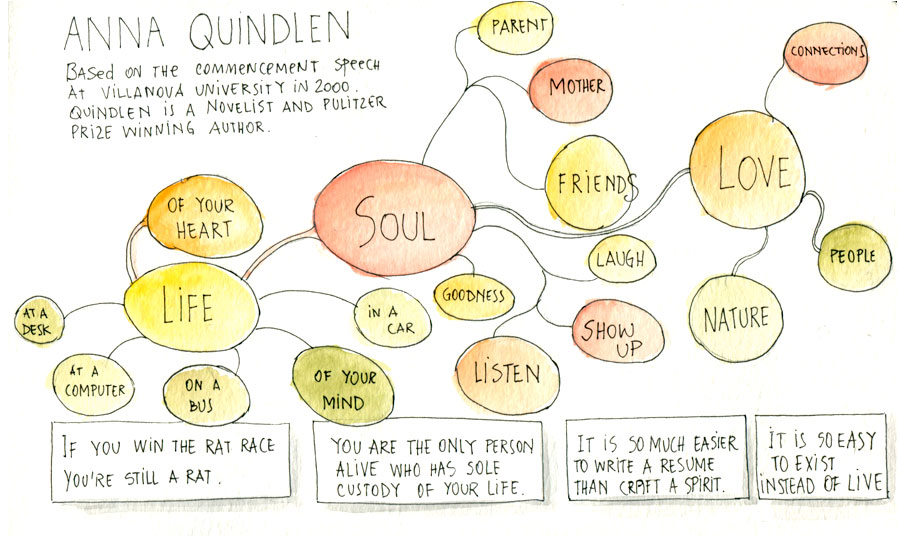 ANNA QUINDLEN
BASED ON THE COMMENCEMENT SPEECH
AT VILLANOVA UNIVERSITY IN 2000.
QUINDLEN IS A NOVELIST AND PULITZER
PRIZE WINNING AUTHOR.
PARENT
MOTHER
FRIENDS
CONNECTIONS
LOVE
PEOPLE
NATURE
SOUL
GOODNESS
LAUGH
SHOW
UP
LISTEN
OF YOUR
HEART
LIFE
AT A
DESK
AT A
COMPUTER
ON A
BUS
IN A
CAR
OF YOUR
MIND
IF YOU WIN THE RAT RACE
YOU'RE STILL A RAT.
YOU ARE THE ONLY PERSON
ALIVE WHO HAS SOLE
CUSTODY OF YOUR LIFE.
IT IS SO MUCH EASIER
TO WRITE A RESUME
THAN CRAFT A SPIRIT.
IT IS SO EASY
TO EXIST
INSTEAD OF LIVE